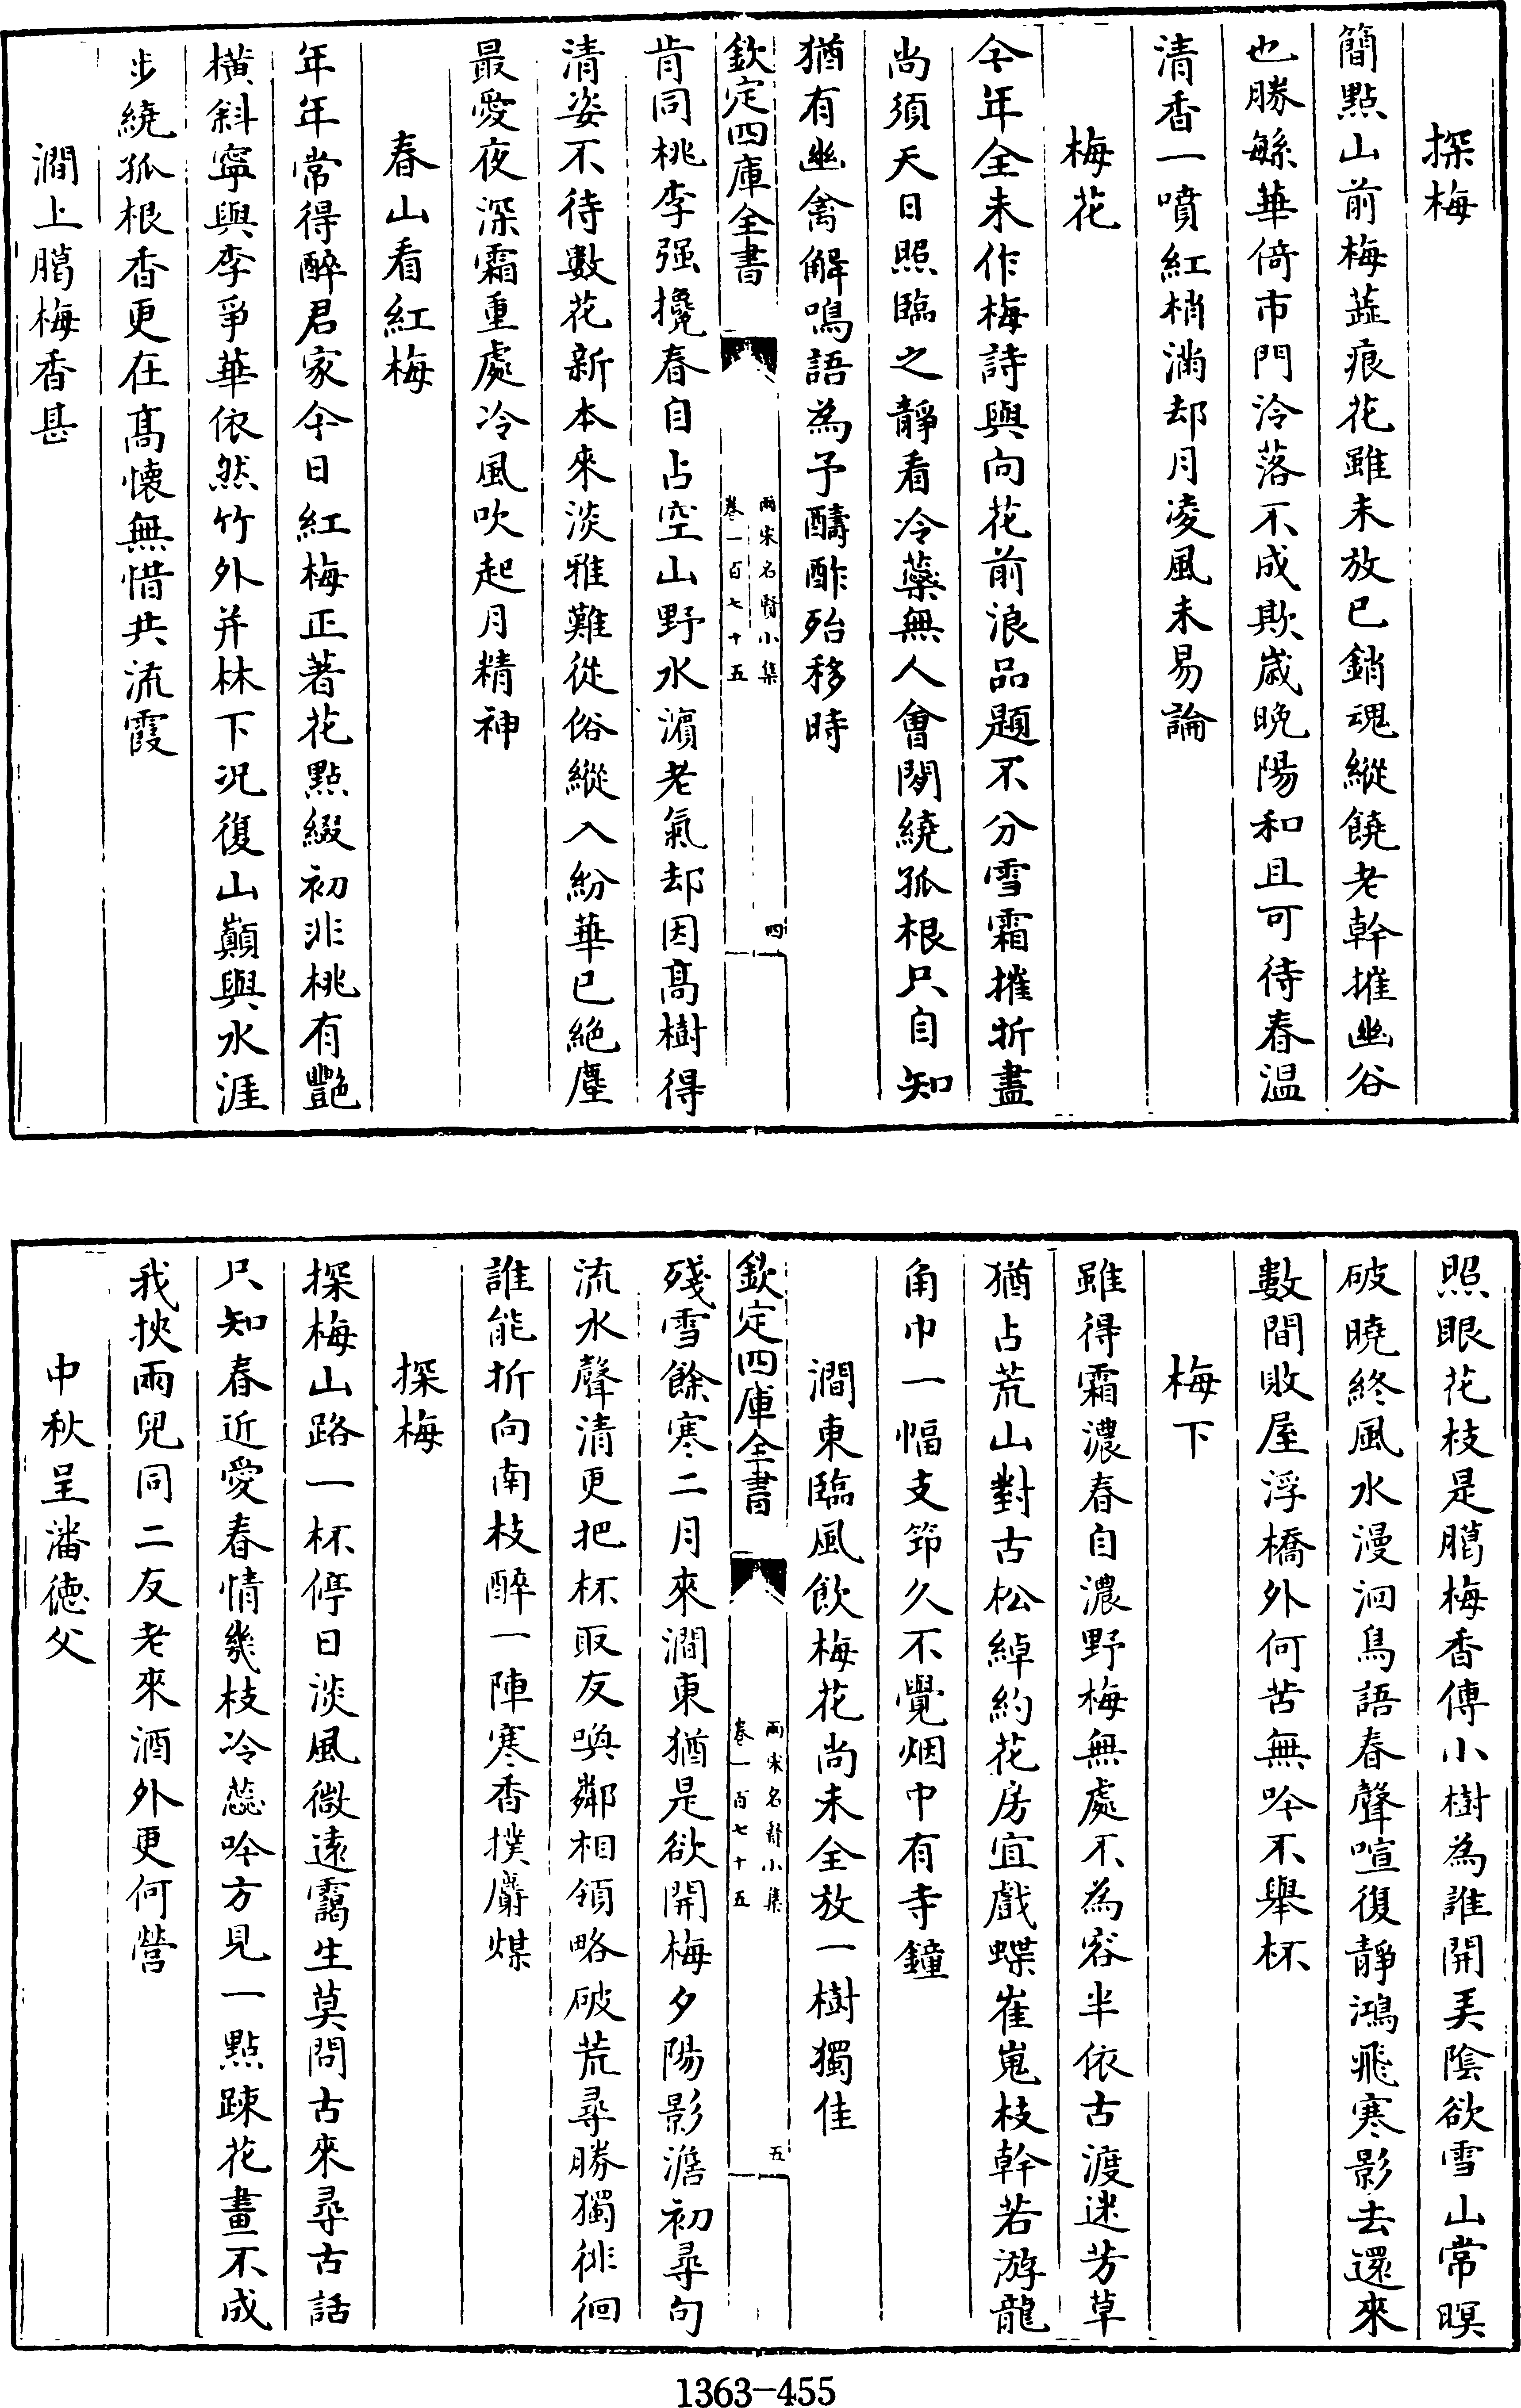 探梅
簡點山前梅蘂痕花雖未放已銷魂縱饒老幹摧幽谷
也勝繁華倚市門冷落不成欺嵗晩陽和且可待春温
清香一噴紅梢滿却月凌風未易論
梅花
今年全未作梅詩與向花前浪品題不分雪霜摧折盡
尚須天日照臨之靜看冷蘂無人會閒繞孤根只自知
猶有幽禽解鳴語為予醻酢殆移時
欽定四庫全書
兩宋名賢小集
卷一百七十五
四
肯同桃李强攙春自占空山野水濵老氣却因髙樹得
清姿不待數花新本來淡雅難從俗縱入紛華已絶塵
最愛夜深霜重處冷風吹起月精神
春山看紅梅
年年常得醉君家今日紅梅正著花點綴初非桃有艷
橫斜寧與李爭華依然竹外并林下况復山巔與水涯
步繞孤根香更在髙懐無惜共流霞
澗上臈梅香甚
照眼花枝是臈梅香傳小樹為誰開美隂欲雪山常暝
破曉終風水漫洄鳥語春聲喧復靜鴻飛寒影去還來
數間敗屋浮橋外何苦無吟不舉杯
梅下
雖得霜濃春自濃野梅無處不為容半依古渡迷芳草
猶占荒山對古松綽約花房宜戲蝶崔嵬枝幹若游龍
角巾一幅支笻久不覺烟中有寺鐘
澗東臨風飲梅花尚未全放一樹獨佳
欽定四庫全書
兩宋名賢小集
卷一百七十五
五
殘雪餘寒二月來澗東猶是欲開梅夕陽影澹初尋句
流水聲清更把杯取友喚鄰相領略破荒尋勝獨徘徊
誰能折向南枝醉一陣寒香撲麝煤
探梅
探梅山路一杯停日淡風微遠靄生莫問古來尋古話
只知春近愛春情幾枝冷蕊吟方見一點踈花畫不成
我挾兩兒同二友老來酒外更何營
中秋呈潘徳父
1363-455